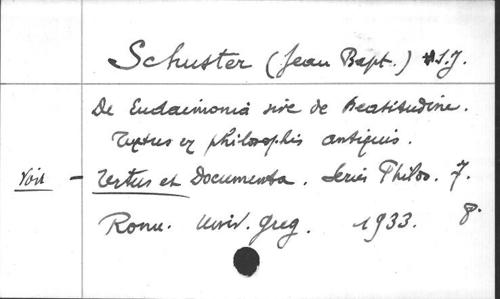 Schuster (Jean Bapt.) S.J.
De Eudaimonia sive de Beatitudine.
Textus ex philosophis antiquis.
Voir – Textus et Documenta. Series Philos. 7.
Romæ. Univ. Greg. 1933. 8.